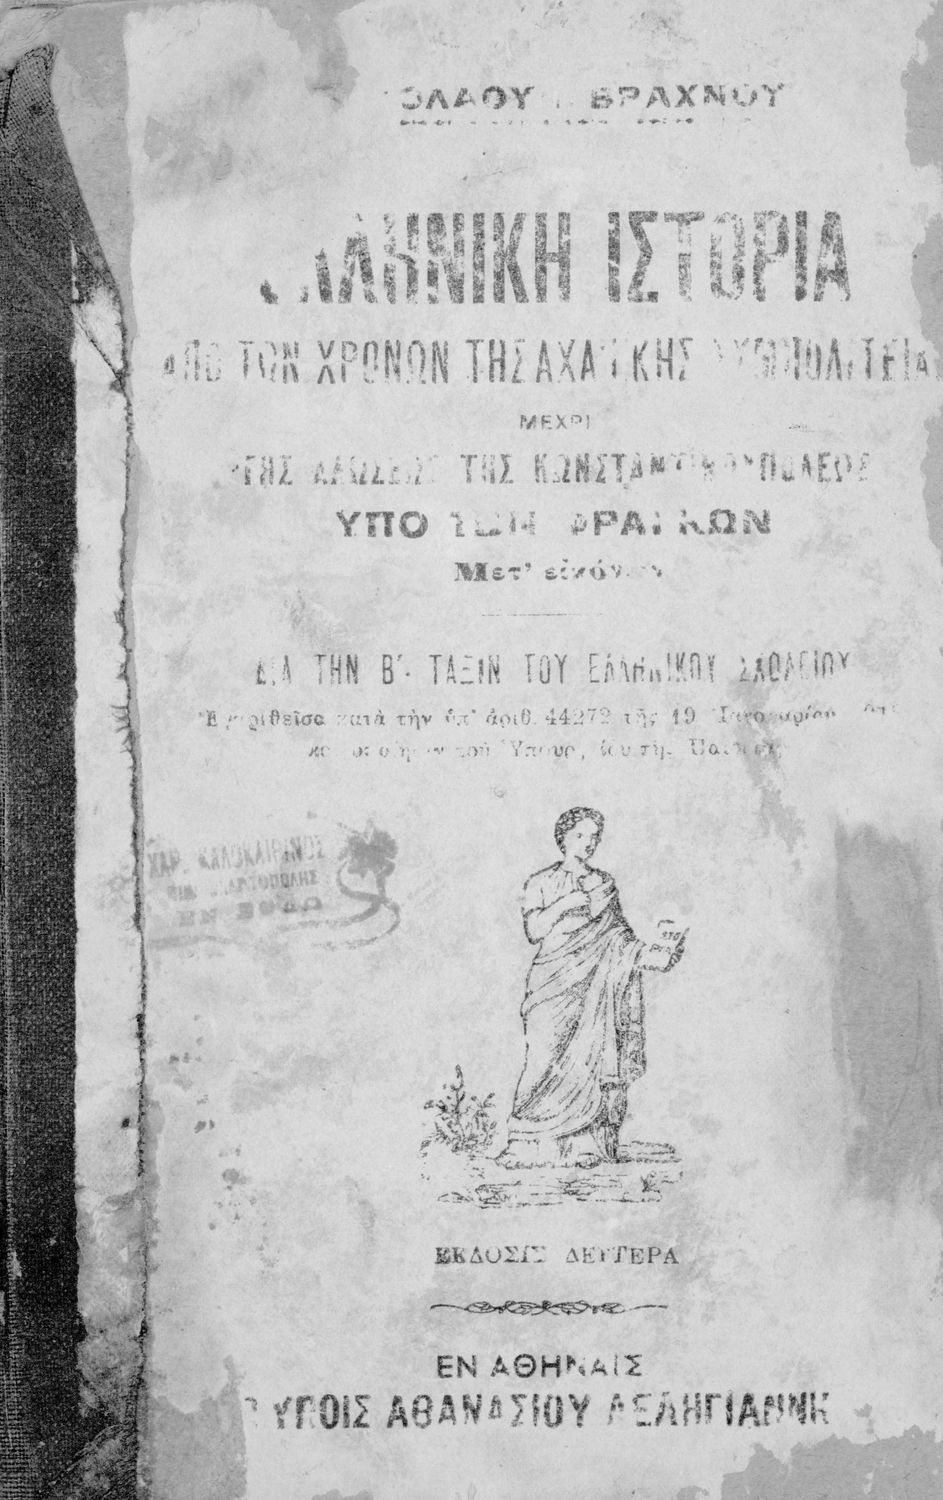 ΒΡΑΧΝΟΥ
ΕΛΛΗΝΙΚΗ ΙΣΤΟΡΙΑ
ΑΠΟ ΤΩΝ ΧΡΟΝΩΝ ΤΗΣ ΑΧΑΪΚΗΣ ΣΥΜΠΟΛΙΤΕΙΑΣ
ΜΕΧΡΙ
ΤΗΣ ΑΛΩΣΕΩΣ ΤΗΣ ΚΩΝΣΤΑΝΤΙΝΟΥΠΟΛΕΩΣ
ΥΠΟ ΤΩΝ ΦΡΑΓΚΩΝ
Μετ' εἰκόνων
ΔΙΑ ΤΗΝ Β΄. ΤΑΞΙΝ ΤΟΥ ΕΛΛΗΝΙΚΟΥ ΣΧΟΛΕΙΟΥ
Ἐγκριθεῖσα κατὰ τὴν ὑπ' ἀριθ. 44272 τῆς 19 Ἰανουαρίου
τοῦ Ὑπουργείου τῆς Παιδείας
ΧΑΡ. ΚΑΛΟΚΑΙΡΙΝΟΣ
ΕΚΔΟΣΙΣ ΔΕΥΤΕΡΑ
ΕΝ ΑΘΗΝΑΙΣ
ΤΥΠΟΙΣ ΑΘΑΝΑΣΙΟΥ ΔΕΛΗΓΙΑΝΝΗ